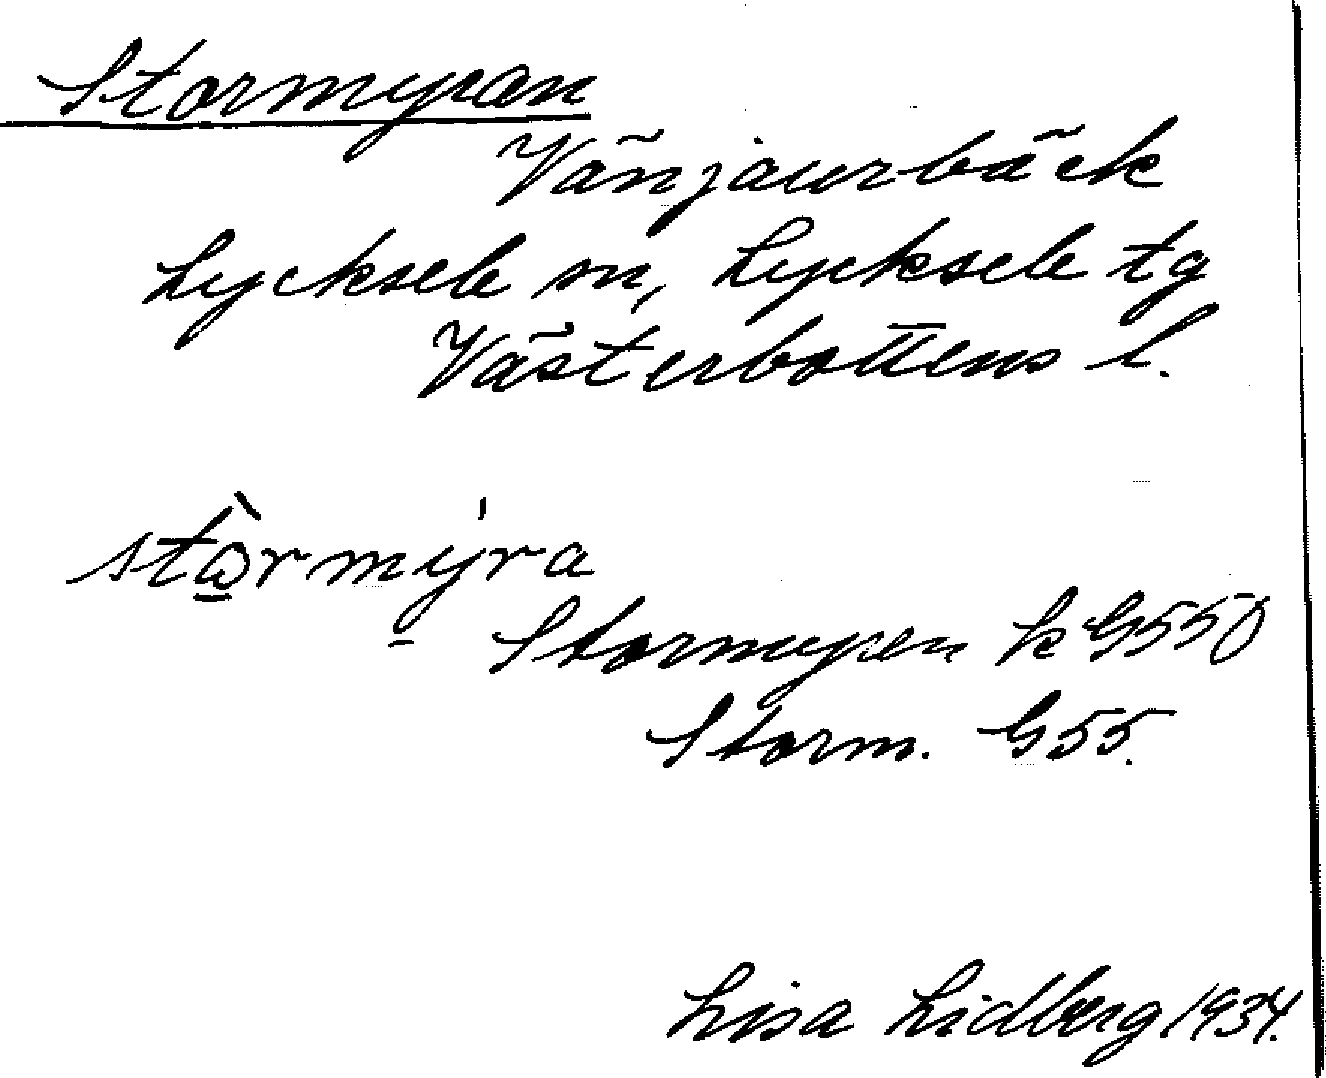 Stormyran
Vänjaurbäck
Lycksele sn, Lycksele tg
Västerbottens l.
stò̠rmý̠ra
Stormyren k G550
Storm. G55.
Lisa Lidberg 1934.